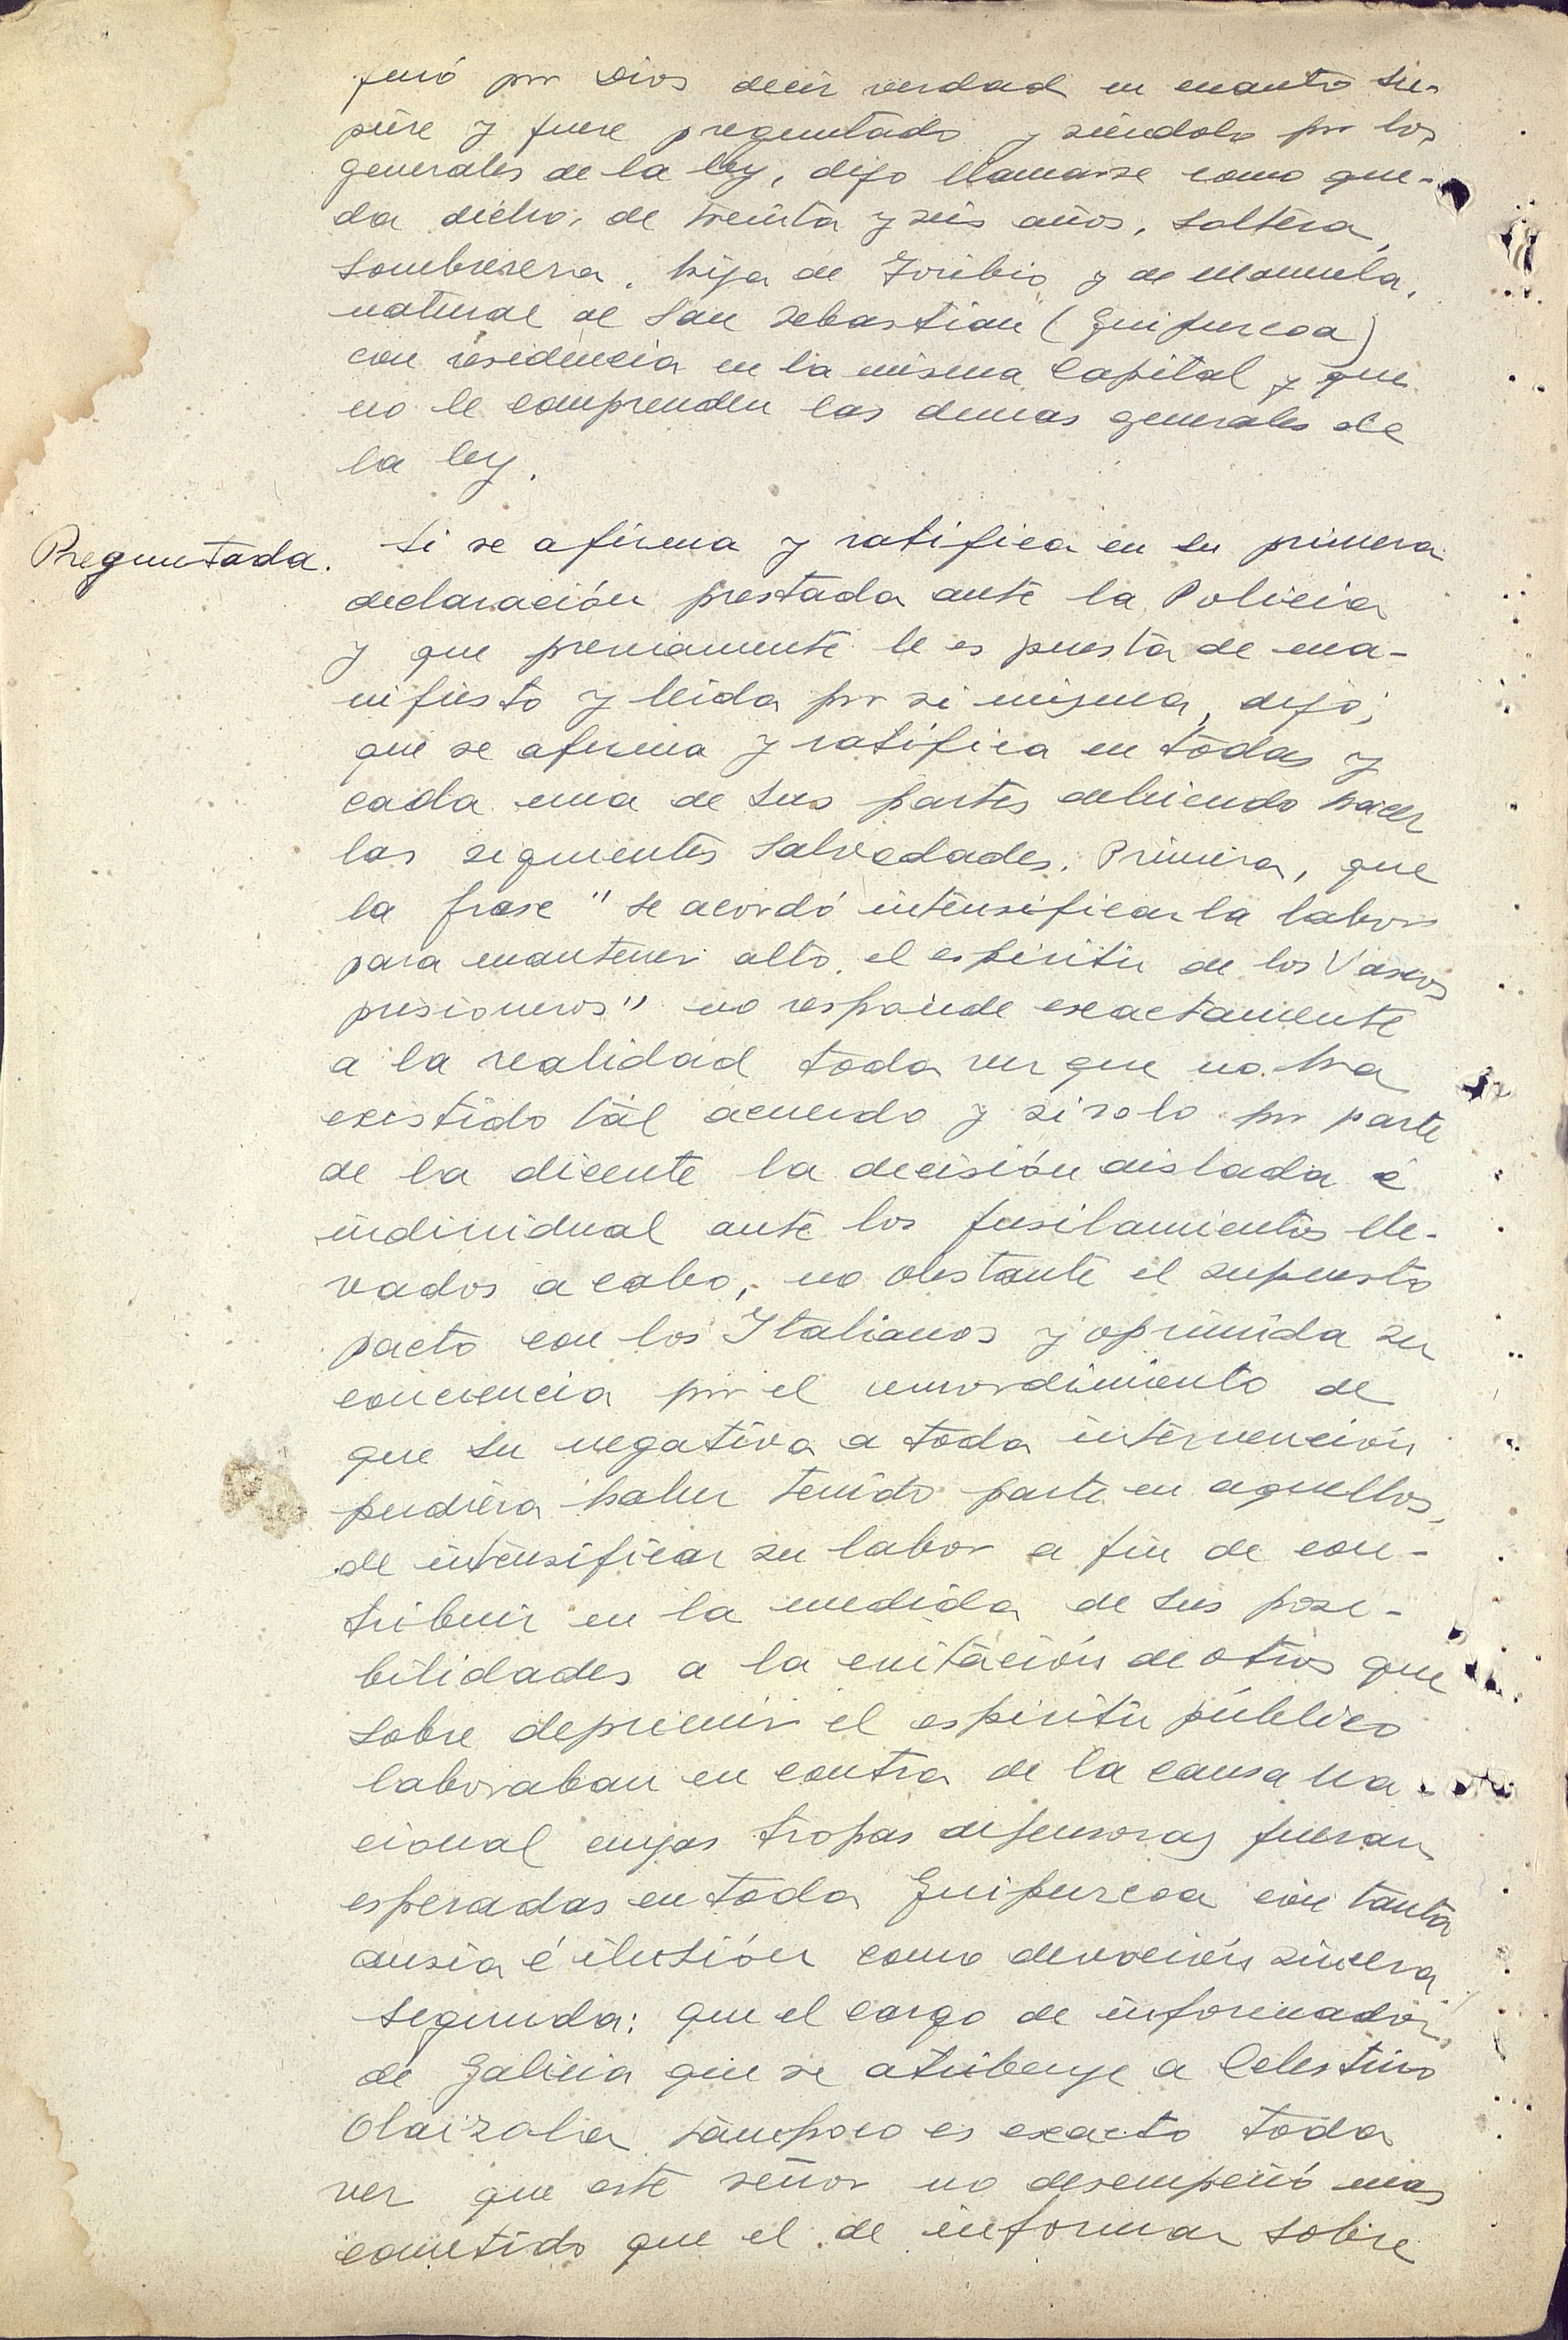 juró por Dios decir verdad en cuanto su-
piere y fuere preguntado y siéndolo por los
generales de la ley, dijo llamarse como que-
da dicho, de treinta y seis años, soltera,
sombrerera, hija de Toribio y de Manuela,
natural de San Sebastian (Guipuzcoa)
con residencia en la misma Capital y que
no le comprenden las demas generales de
la ley.
Preguntada. Si se afirma y ratifica en su primera
declaración prestada ante la Policia
y que previamente le es puesta de ma-
nifiesto y leida por si misma, dijo;
que se afirma y ratifica en todas y
cada una de sus partes debiendo hacer
las siguientes salvedades. Primera, que
la frase "se acordó intensificar la labor
para mantener alto el espiritu de los Vascos
prisioneros" no responde exactamente
a la realidad toda vez que no ha
existido tal acuerdo y si solo por parte
de la dicente la decisión aislada é
individual ante los fusilamientos lle-
vados a cabo, no obstante el supuesto
pacto con los Italianos y oprimida su
conciencia por el remordimiento de
que su negativa a toda intervención
pudiera haber tenido parte en aquellos,
de intensificar su labor a fin de con-
tribuir en la medida de sus posi-
bilidades a la evitación de otros que
sobre deprimir el espiritu público
laboraban en contra de la causa na-
cional cuyas tropas defensoras fueran
esperadas en toda Guipuzcoa con tanta
ansia é ilusión como devoción sincera
Segunda: que el cargo de informador
de Galicia que se atribuye a Celestino
Olaizola tampoco es exacto toda
vez que este señor no desempeñó mas
cometido que el de informar sobre